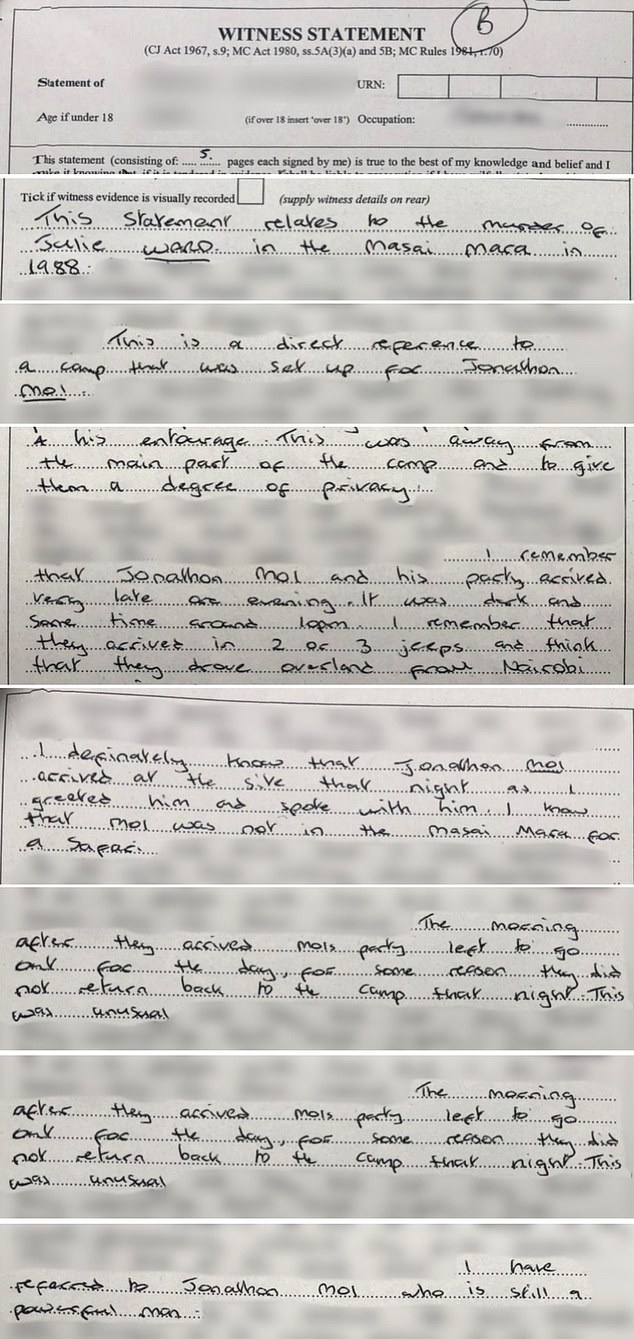 B
WITNESS STATEMENT
(CJ Act 1967, s.9; MC Act 1980, ss.5A(3)(a) and 5B; MC Rules 1981, r.70)
Statement of URN:
Age if under 18 (if over 18 insert 'over 18') Occupation:
This statement (consisting of: 5. pages each signed by me) is true to the best of my knowledge and belief and I
Tick if witness evidence is visually recorded (supply witness details on rear)
This statement relates to the murder of
Julie WARD in the Masai Mara in
1988.
This is a direct reference to
a camp that was set up for Jonathon
MOI.
& his entourage. This was away from
the main part of the camp and to give
them a degree of privacy.
I remember
that Jonathon MOI and his party arrived
very late one evening. It was dark and
some time around 10pm. I remember that
they arrived in 2 or 3 jeeps and think
that they drove overland from Nairobi
I definately know that Jonathon MOI
arrived at the site that night as I
greeted him and spoke with him. I know
that MOI was not in the Masai Mara for
a Safari.
The morning
after they arrived MOIs party left to go
out for the day, for some reason they did
not return back to the camp that night. This
was unusual
The morning
after they arrived MOIs party left to go
out for the day, for some reason they did
not return back to the camp that night. This
was unusual
I have
referred to Jonathon MOI who is still a
powerful man.